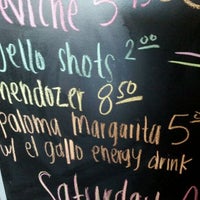 eviche 5
Jello shots 2.00
mendozer 8.50
paloma margarita 5
w/ el gallo energy drink
Saturday